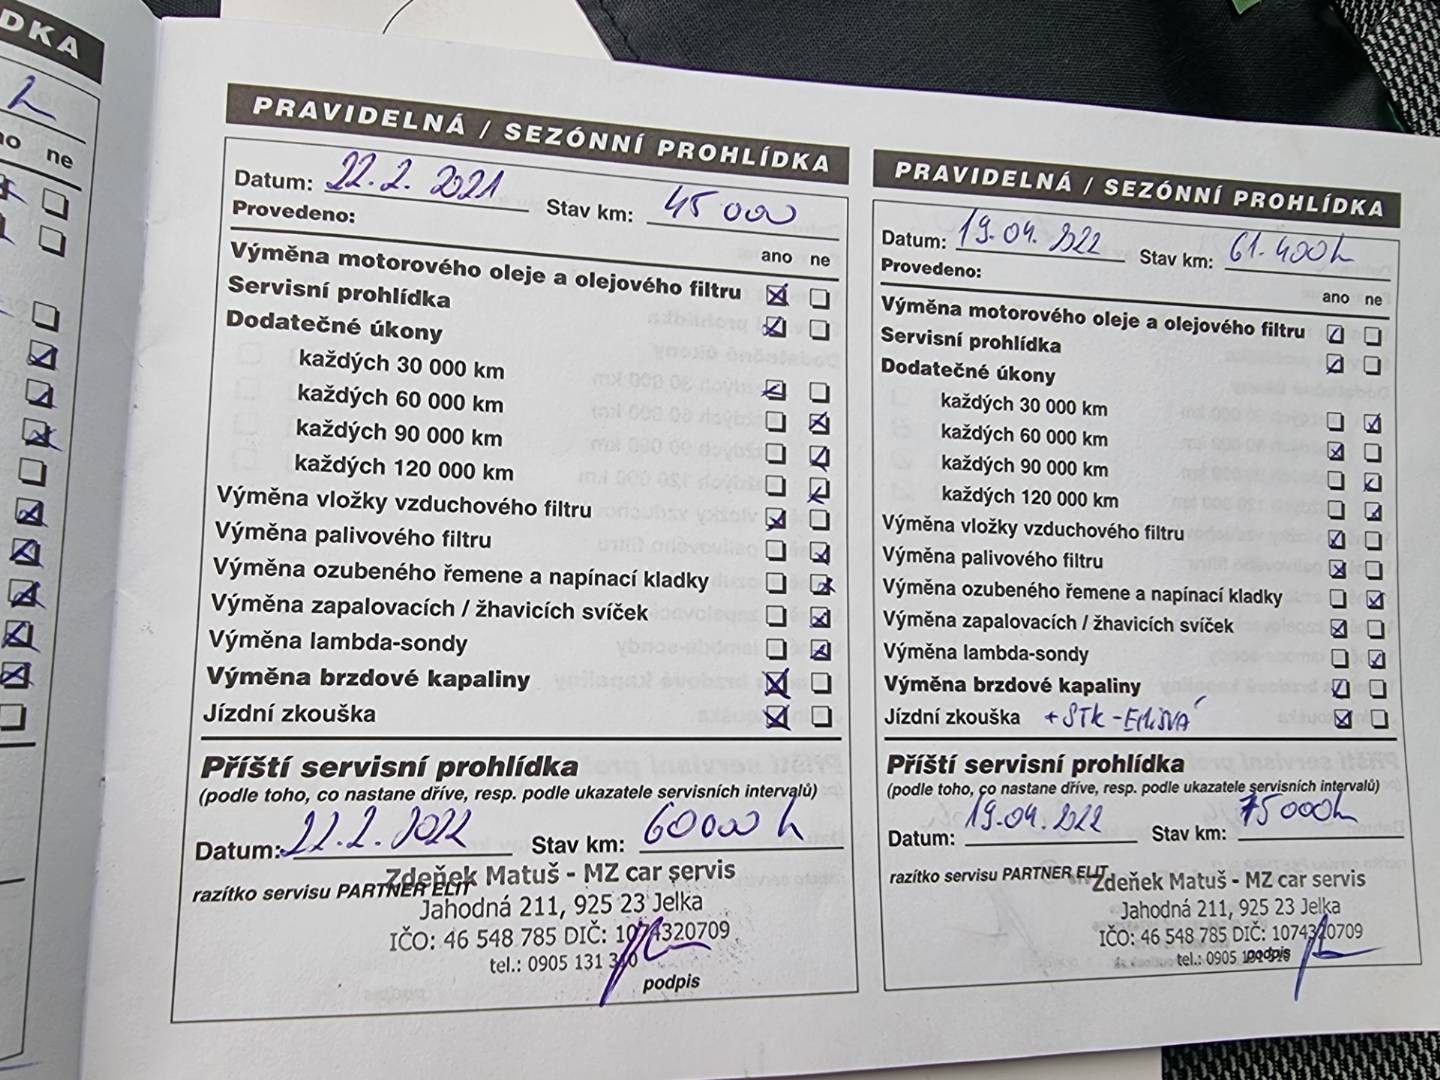 DKA
ano ne
PRAVIDELNÁ / SEZÓNNÍ PROHLÍDKA
Datum: 22.2. 2021 Stav km: 45 000
Provedeno:
ano ne
Výměna motorového oleje a olejového filtru
Servisní prohlídka
Dodatečné úkony
každých 30 000 km
každých 60 000 km
každých 90 000 km
každých 120 000 km
Výměna vložky vzduchového filtru
Výměna palivového filtru
Výměna ozubeného řemene a napínací kladky
Výměna zapalovacích / žhavicích svíček
Výměna lambda-sondy
Výměna brzdové kapaliny
Jízdní zkouška
Příští servisní prohlídka
(podle toho, co nastane dříve, resp. podle ukazatele servisních intervalů)
Datum: 22.2. 2022 Stav km: 60 000 h
razítko servisu PARTNER ELIT
Zdeňek Matuš - MZ car servis
Jahodná 211, 925 23 Jelka
IČO: 46 548 785 DIČ: 1074320709
tel.: 0905 131
podpis
PRAVIDELNÁ / SEZÓNNÍ PROHLÍDKA
Datum: 19.04. 2022 Stav km: 61.400 h
Provedeno:
ano ne
Výměna motorového oleje a olejového filtru
Servisní prohlídka
Dodatečné úkony
každých 30 000 km
každých 60 000 km
každých 90 000 km
každých 120 000 km
Výměna vložky vzduchového filtru
Výměna palivového filtru
Výměna ozubeného řemene a napínací kladky
Výměna zapalovacích / žhavicích svíček
Výměna lambda-sondy
Výměna brzdové kapaliny
Jízdní zkouška +STK -
Příští servisní prohlídka
(podle toho, co nastane dříve, resp. podle ukazatele servisních intervalů)
Datum: 19.04. 2022 Stav km: 75 000 h
razítko servisu PARTNER ELIT
Zdeňek Matuš - MZ car servis
Jahodná 211, 925 23 Jelka
IČO: 46 548 785 DIČ: 1074320709
tel.: 0905 131
podpis